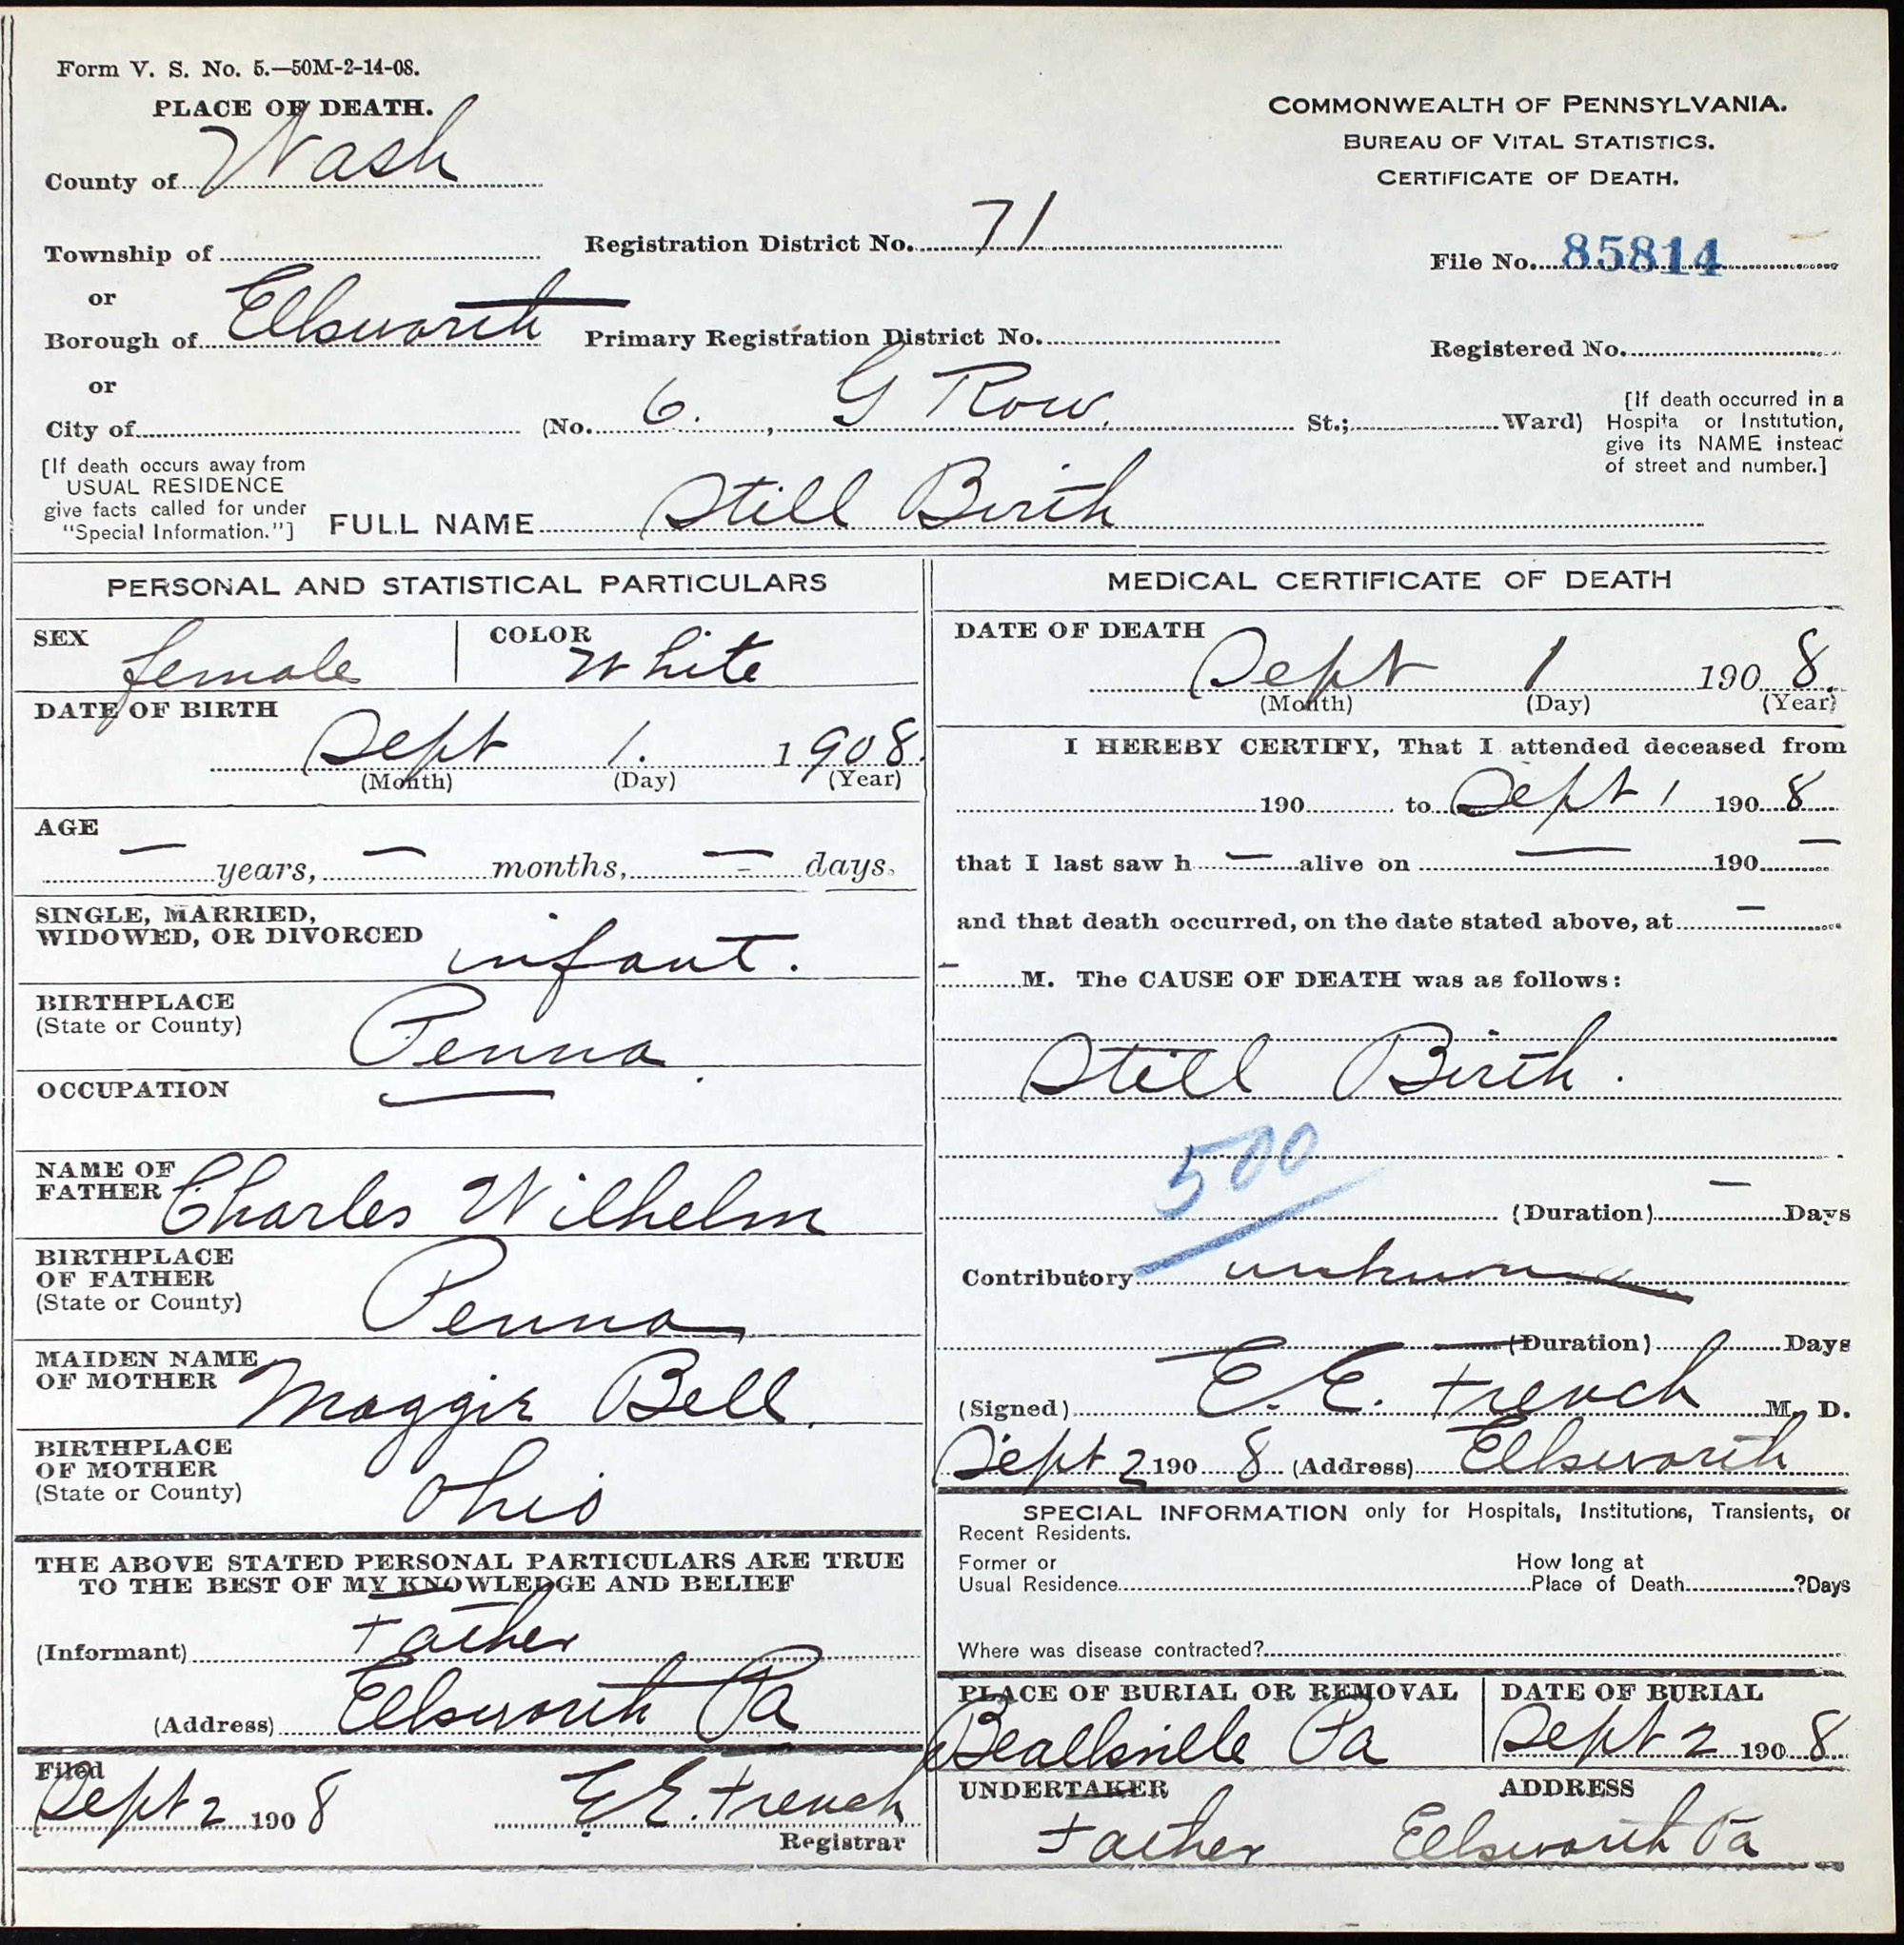 Form V. S. No. 5.—50M-2-14-08.
PLACE OF DEATH.
County of Wash
Township of
or
Borough of Ellsworth
or
City of
COMMONWEALTH OF PENNSYLVANIA.
BUREAU OF VITAL STATISTICS.
CERTIFICATE OF DEATH.
Registration District No. 71
File No. 85814
Primary Registration District No.
Registered No.
(No. 6. , G Row, St.; Ward)
[If death occurred in a
Hospita or Institution,
give its NAME instead
of street and number.]
[If death occurs away from
USUAL RESIDENCE
give facts called for under
"Special Information."]
FULL NAME Still Birth
PERSONAL AND STATISTICAL PARTICULARS
SEX female
COLOR White
DATE OF BIRTH
Sept 1. 1908.
(Month) (Day) (Year)
AGE
— years, — months, — days.
SINGLE, MARRIED,
WIDOWED, OR DIVORCED infant.
BIRTHPLACE
(State or County) Penna
OCCUPATION —
NAME OF
FATHER Charles Wilhelm
BIRTHPLACE
OF FATHER
(State or County) Penna
MAIDEN NAME
OF MOTHER Maggie Bell.
BIRTHPLACE
OF MOTHER
(State or County) Ohio
THE ABOVE STATED PERSONAL PARTICULARS ARE TRUE
TO THE BEST OF MY KNOWLEDGE AND BELIEF
(Informant) Father
(Address) Ellsworth Pa
Filed
Sept 2 1908 E E. French
Registrar
MEDICAL CERTIFICATE OF DEATH
DATE OF DEATH
Sept 1 1908.
(Month) (Day) (Year)
I HEREBY CERTIFY, That I attended deceased from
190 to Sept 1 1908
that I last saw h — alive on — 190 —
and that death occurred, on the date stated above, at —
— M. The CAUSE OF DEATH was as follows:
Still Birth.
500
(Duration) — Days
Contributory unknown
(Duration) Days
(Signed) E. E. French M. D.
Sept 2 1908 (Address) Ellsworth
SPECIAL INFORMATION only for Hospitals, Institutions, Transients, or
Recent Residents.
Former or
Usual Residence
How long at
Place of Death ?Days
Where was disease contracted?
PLACE OF BURIAL OR REMOVAL
Beallsville Pa
DATE OF BURIAL
Sept 2 1908.
UNDERTAKER
Father
ADDRESS
Ellsworth Pa